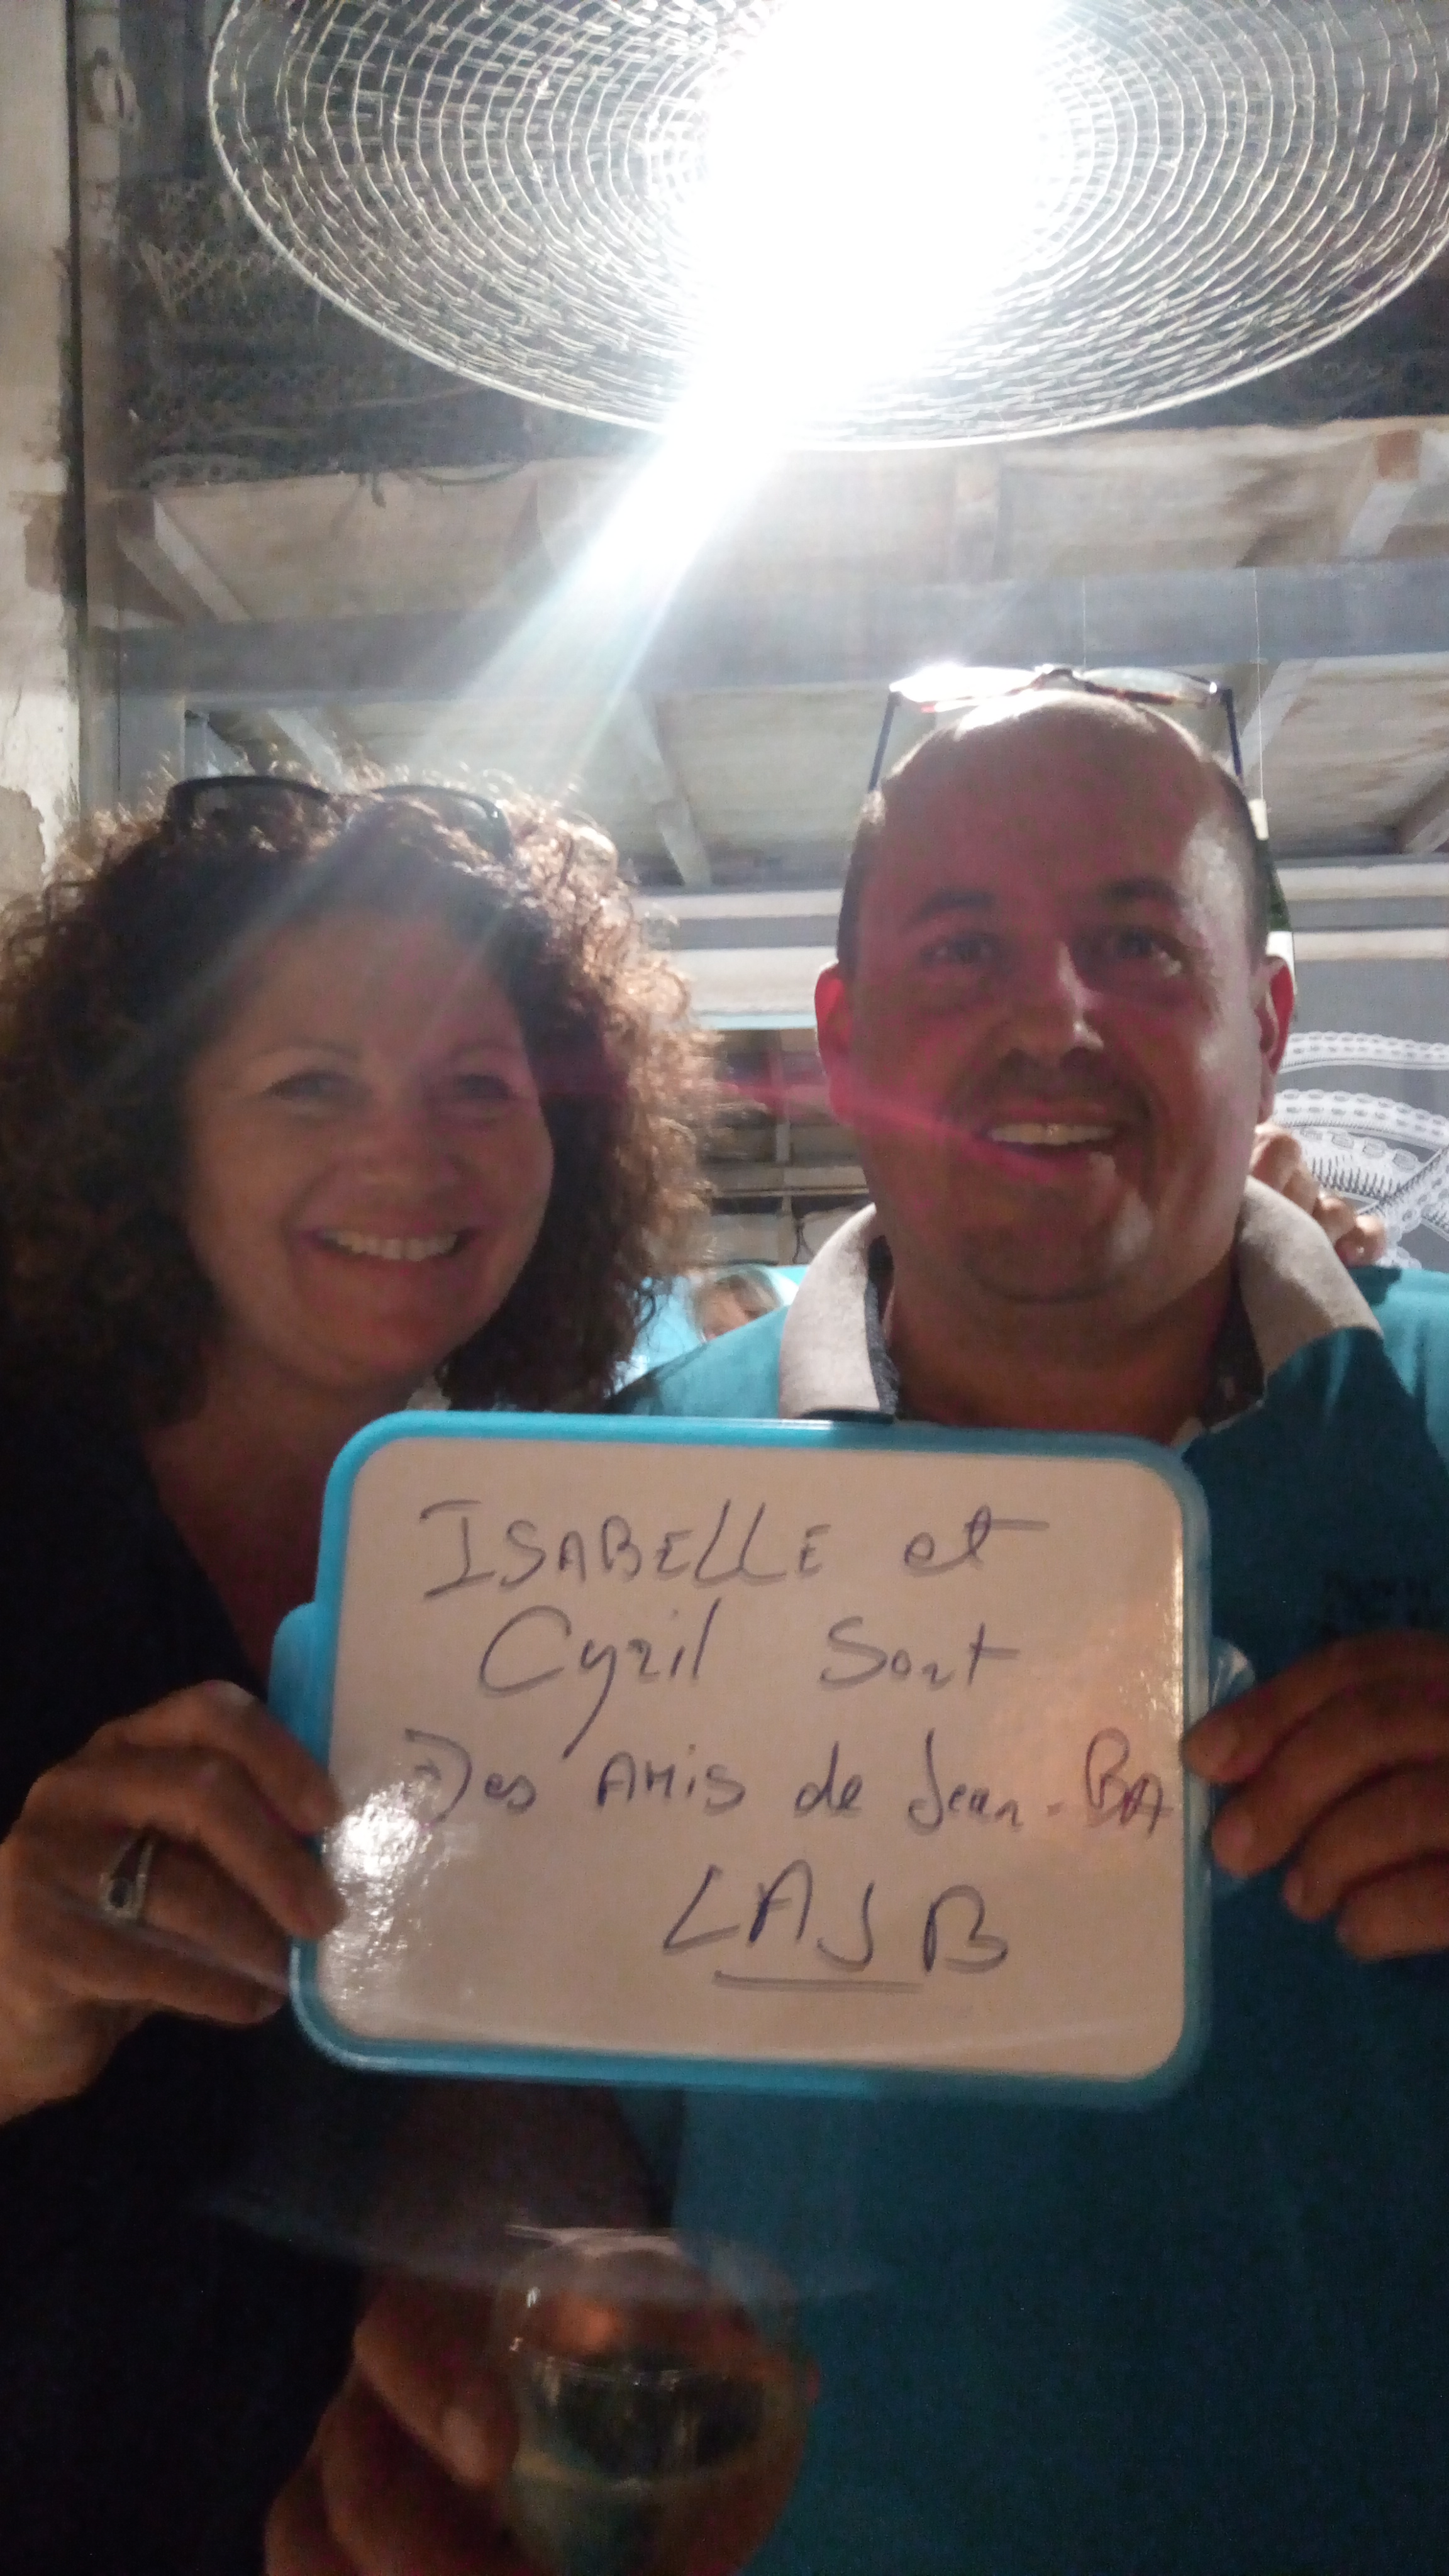 ISABELLE et
Cyril Sont
Des AMIS de Jean-BA
LAJB